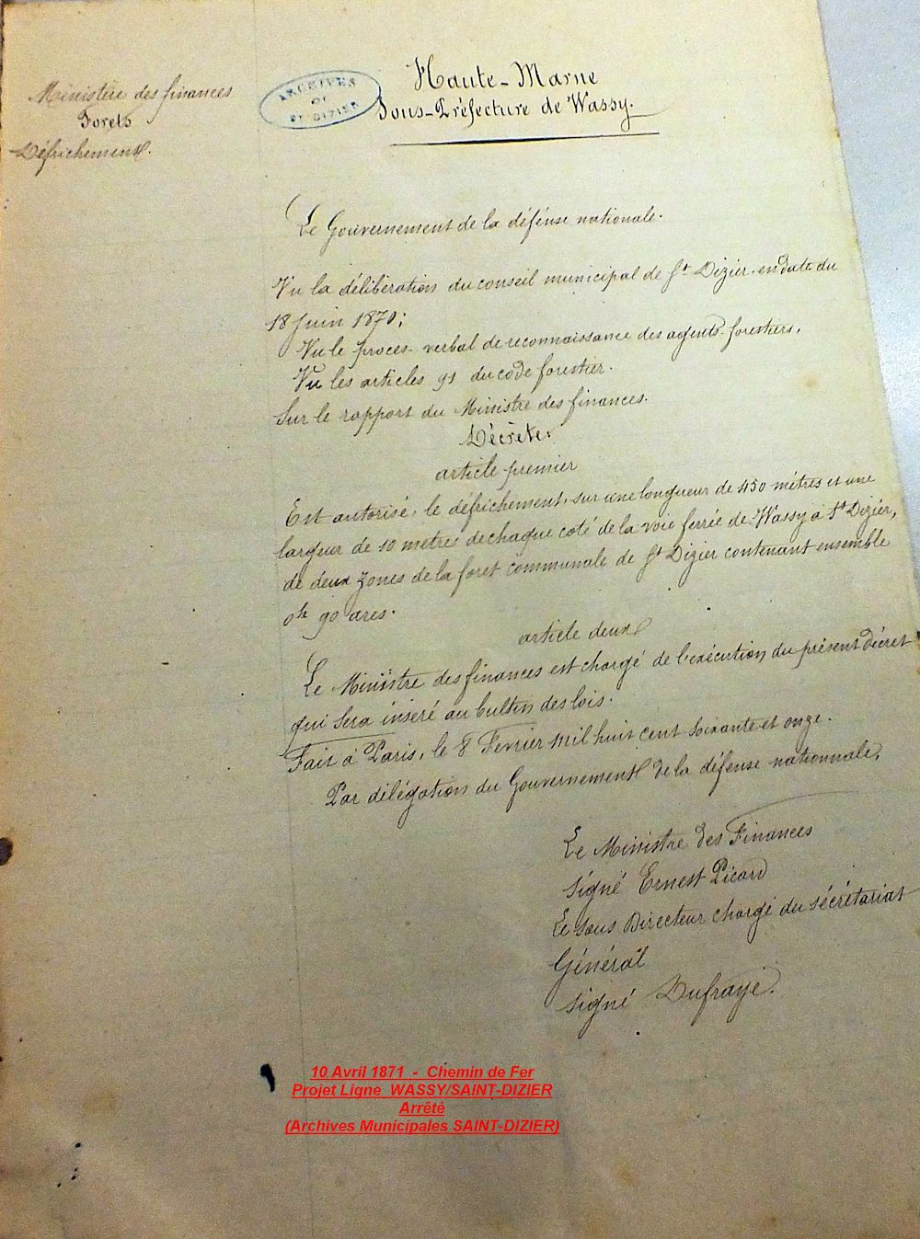 Ministère des finances
Forets
Défrichement.
ARCHIVES
DE
ST DIZIER
Haute-Marne
Sous-Préfecture de Wassy.
Le Gouvernement de la défense nationale.
Vu la délibération du conseil municipal de St Dizier en date du
18 Juin 1870;
Vu le procès-verbal de reconnaissance des agents forestiers,
Vu les articles 91 du code forestier.
Sur le rapport du Ministre des finances.
Décrète.
article premier
Est autorisé, le défrichement, sur une longueur de 450 mètres et une
largeur de 10 metres de chaque coté de la voie ferrée de Wassy à St Dizier,
de deux zones de la foret communale de St Dizier contenant ensemble
0h 90 ares.
article deux
Le Ministre des finances est chargé de l'exécution du présent décret
qui sera inséré au bultin des lois.
Fait à Paris, le 8 Fevrier mil huit cent soixante et onze.
Par délégation du Gouvernement de la défense nationnale,
Le Ministre des Finances
Signé Ernest Picard
Le sous Directeur chargé du sécrétariat
Général
Signé Dufrayé.
10 Avril 1871 - Chemin de Fer
Projet Ligne WASSY/SAINT-DIZIER
Arrêté
(Archives Municipales SAINT-DIZIER)